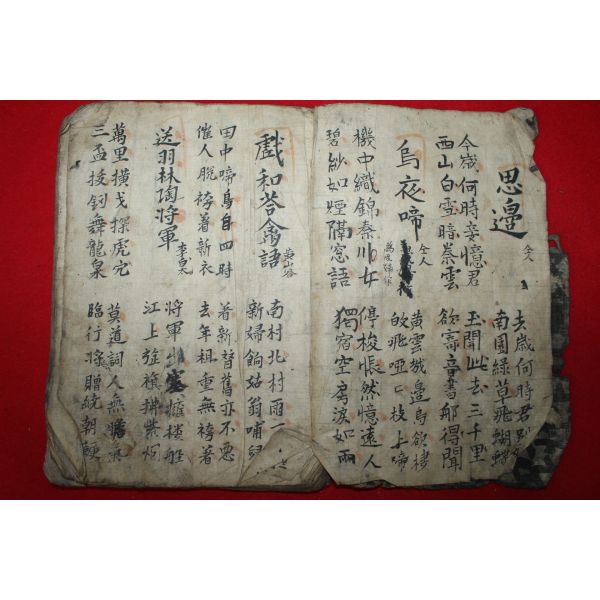 思邊 仝人
去歲何時君別
南園綠草飛蝴蝶
今歲何時妾憶君
西山白雪暗秦雲
玉關此去三千里
欲寄音書那得聞
烏夜啼 仝人
黃雲城邊烏欲棲
飛啞ㄷ枝上啼
機中織錦秦川女
碧紗如煙隔窓語
停梭悵然憶遠人
獨宿空房淚如雨
戱和荅禽語 黃山谷
南村北村雨一
新婦餉姑翁哺兒
田中啼鳥自四時
催人脫袴着新衣
着新替舊亦不惡
去年租重無袴着
送羽林陶將軍 李太白
將軍出塞擁樓船
江上旌旗拂紫烟
萬里橫戈探虎穴
三盃拔釼舞龍泉
莫道詞人無膽氣
臨行將贈繞朝鞭